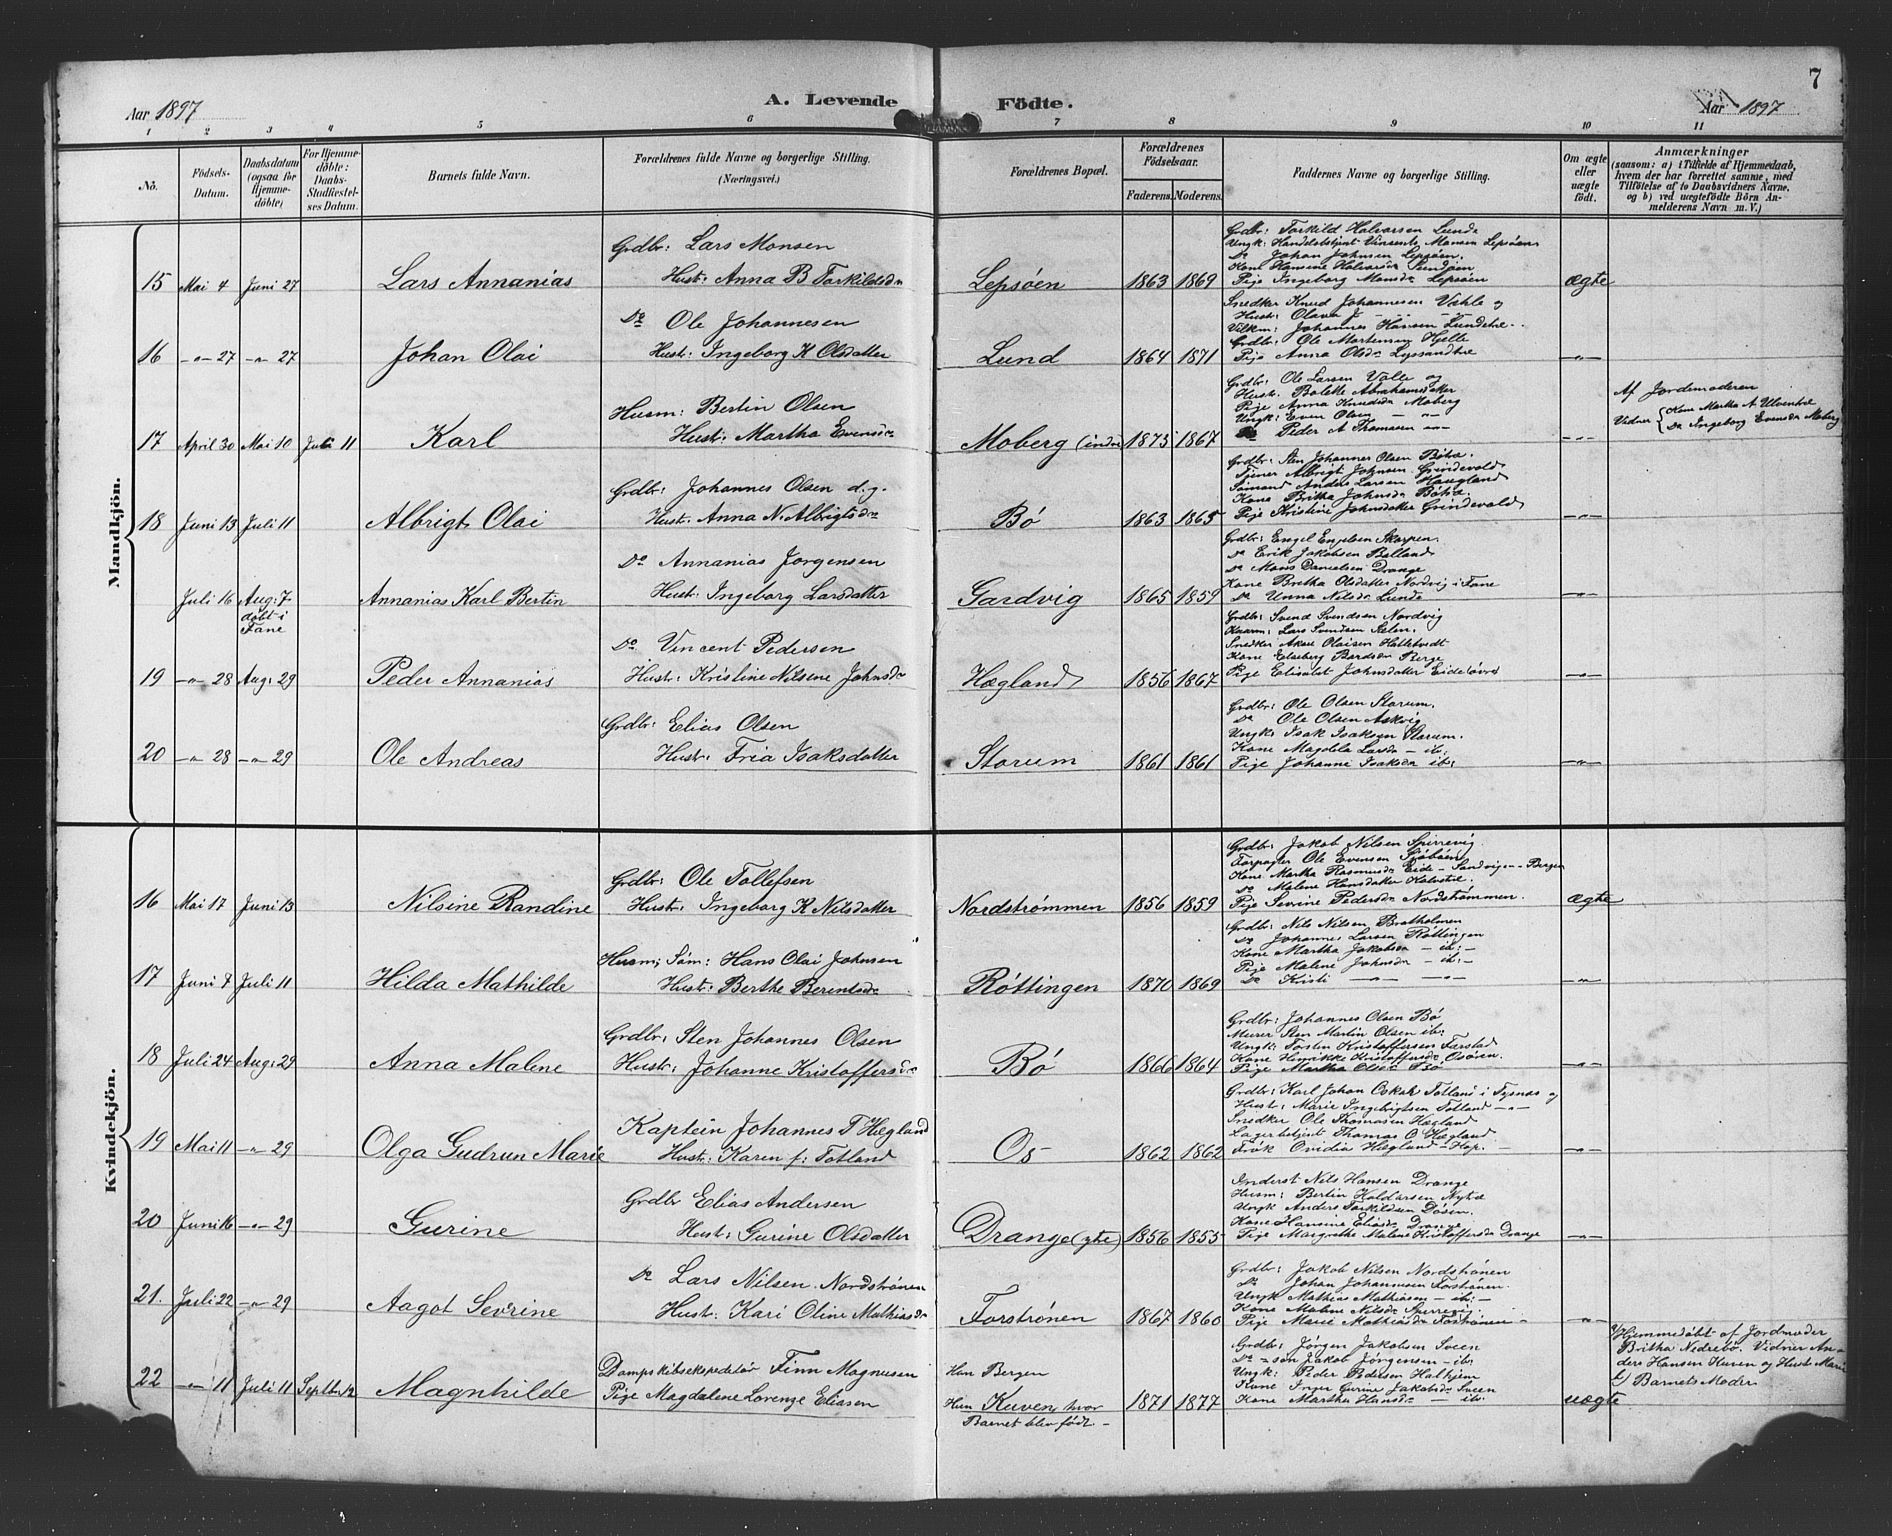 7
Aar 1897
A. Levende Födte.
Aar 1897
1 2 3 4 5 6 7 8 9 10 11
No.
Födsels-Datum.
Daabsdatum (ogsaa for Hjemme-döbte)
For Hjemme-döbte: Daabs-Stadfæstel-ses Datum.
Barnets fulde Navn.
Forældrenes fulde Navne og borgerlige Stilling.
(Næringsvei.)
Forældrenes Bopæl.
Forældrenes Födselsaar.
Faderens. Moderens.
Faddernes Navne og borgerlige Stilling.
Om ægte eller uægte födt.
Anmærkninger
(saasom: a) i Tilfælde af Hjemmedaab,
hvem der har forrettet samme, med
Tilföielse af to Daabsvidners Navne,
og b) ved uægtefödte Börn An-
melderens Navn m. V.)
Mandkjön.
Grdbr: Torkild Halvorsen Lunde
Grdbr: Lars Monsen
Ungk: Handelsbetjent Vinsents Monsen Lepsøen
Do Johan Johnsen Lepsøen.
Kone Hansine Halvorsd
15 Mai 4 Juni 27 Lars Annanias Hust: Anna B Torkildsdr Lepsøen 1863 1869 Pige Ingeborg Monsdr Lepsøen ægte
Snedker Knud Johannesen Vahle og
Do Ole Johannesen
Hust: Olava J
Johannes Hansen
Grdbr: Ole Mortensen Hjelle
16 -"- 27 -"- 27 Johan Olai Hust: Ingeborg K Olsdatter Lund 1864 1871 Pige Anna Olsdr Lyssandtræ -"-
Grdbr: Ole Larsen Valle og
Hust: Bolette Abrahamsdatter
Af Jordmoderen
Husm: Bertin Olsen
Pige Anna Knudsdr Moberg
Vidner Kone Martha A Ulventræ
Ungk: Even Olsen -"-
Do Ingeborg Evensdr Moberg
17 April 30 Mai 10 Juli 11 Karl Hust: Martha Evensdr Moberg (indre 1875 1867 Peder A Thomsen -"- -"-
Grdbr: Sten Johannes Olsen Bøtræ.
Tjener Albrigt Johnsen Grindevold
Grdbr: Johannes Olsen d.y.
Sømand Anders Larsen Haugland
Kone Britha Johnsdr Bøtræ.
18 Juni 13 Juli 11 Albrigt Olai Hust: Anna N. Albrigtsdr Bø 1863 1865 Pige Kristine Johnsdatter Grindevold -"-
Grdbr: Engel Engelsen Skorpen.
Do Annanias Jørgensen
Do Erik Jakobsen Bolland
Do Mons Danielsen Drange
Kone Bretha Olsdatter Nordvig i Fane
Juli 16 Aug: 7 døbt i Fane Annanias Karl Bertin Hust: Ingeborg Larsdatter Gardvig 1865 1859 Do Unna Nilsdr Lunde -"-
Grdbr: Svend Svendsen Nordvig
Do Vincent Pedersen
Lars Svendsen
Snedker Olaisen Halletvedt
Kone Elseberg Bardsdr Berge
19 -"- 28 Aug: 29 Peder Annanias Hust: Kristine Nilsene Johnsdr Hægland 1856 1867 Pige Elisabet Johnsdatter Eide -"-
Grdbr: Ole Olsen Storum.
Grdbr: Elias Olsen
Do Ole Olsen Askvig
Ungk: Isak Isaksen Storum.
Kone Magdela Larsdr - ib:
20 -"- 28 -"- 29 Ole Andreas Hust: Fria Isaksdatter Storum 1861 1861 Pige Johanne Isaksdr ib: -"-
Kvindekjön.
Grdbr: Jakob Nilsen Spirrevig
Forpagter Ole Evensen Sjøbøen
Grdbr: Ole Tollefsen
Kone Martha Rasmusdr Eide - Sandvigen - Bergen
Do Malene Hansdatter
16 Mai 17 Juni 13 Nilsine Randine Hust: Ingeborg K Nilsdatter Nordstrømmen 1856 1859 Pige Sevrine Pedersdr Nordstrømmen. ægte
Grdbr: Nils Nilsen Bratholmen
Do Johannes Larsen Røttingen
Husm; Søm: Hans Olai Johnsen
Kone Martha Jakobsdr - ib: -
Pige Malene Johnsdr - ib: -
17 Juni 7 Juli 11 Hilda Mathilde Hust: Berthe Berentsdr Røttingen 1870 1869 Do Kristi -"- -"- -"-
Grdbr: Johannes Olsen Bø
Grdbr: Sten Johannes Olsen
Murer Sten Martin Olsen ib:
Ungk: Torsten Kristoffersen Ferstad
Kone Henrikke Kristoffersdr Osøren.
18 Juli 24 Aug: 29 Anna Malene Hust: Johanne Kristoffersdr Bø 1866 1864 Pige Martha Olsdr Bø -"-
Grdbr: Karl Johan Oskar Totland i Tysnæs og
Kaptein Johannes T Hægland
Hust: Marie Ingebrigtsen Totland -"-
Snedker Ole Thomasen Hægland
Lagerbetjent Thomas O Hægland
19 Mai 11 -"- 29 Olga Gudrun Marie Hust: Karen f: Totland Os 1862 1862 Frøk Ovidia Hægland - Hop. - -"-
Inderst Nils Hansen Drange
Grdbr Elias Andersen
Husm: Bertin Haldorsen Nytræ
Ungk Anders Torkildsen Døsen.
Kone Hansine Eliasdr Drange
20 Juni 16 -"- 29 Gurine Hust: Gurine Olsdatter Drange (ytre) 1856 1855 Pige Margrethe Malene Kristoffersdr Drange -"-
Grdbr: Jakob Nilsen Nordstrønen
Do Lars Nilsen Nordstrønen
Do Johan Johannesen Forstrønen.
Ungk Mathias Mathiasen - ib: -
Kone Malene Nilsdr Spirrevig.
21. Juli 22 -"- 29 Aagot Sevrine Hust: Kari Oline Mathiasdr Forstrønen 1867 1860 Pige Marie Mathiasdr Forstrønen - -"-
Grdbr: Jørgen Jakobsen Sveen
Hjemmedøbt af Jordmoder
Do - søn Jakob Jörgensen - ib:
Britha Nidrebø. Vidner An-
Dampskibsexpeditør Finn Magnusen
Hans Bergen
Ungk: Peder Halhjem
ders Hansen Kuven og Hust Marie
Kone Inger Gurine Jakobsdr Sveen
Barnets Moder
22 -"- 11 Juli 11 Septbr 12 Magnhilde Pige Magdalene Lorenze Eliasen Hun Kuven, hvor 1871 1877 Kone Martha Hansdr - ib. uægte
Barnet blev født -